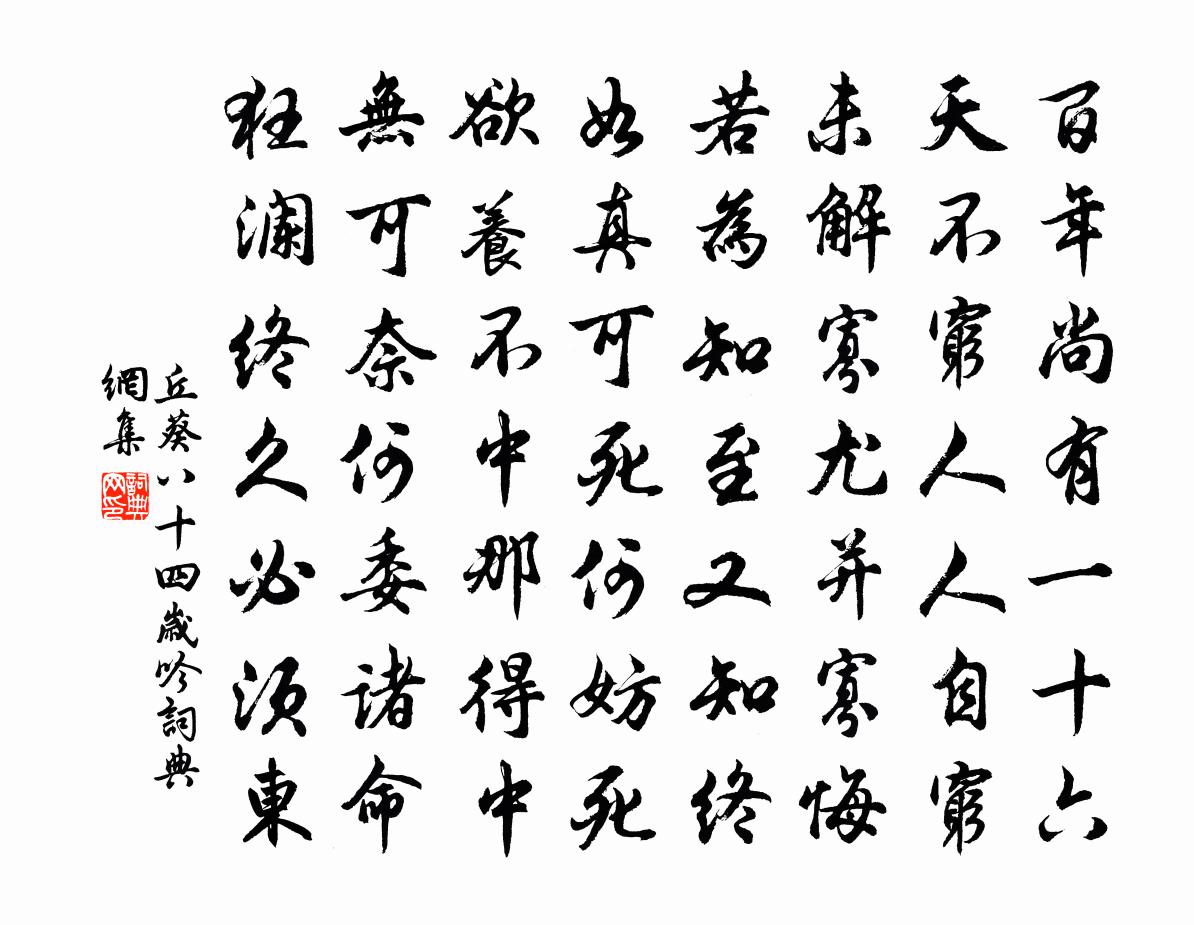 百年尚有一十六
天不窮人人自窮
未解寡尤并寡悔
若為知至又知終
如真可死何妨死
欲養不中那得中
無可奈何委諸命
狂瀾終久必須東
丘葵八十四歲吟詞典
網集
詞典網印